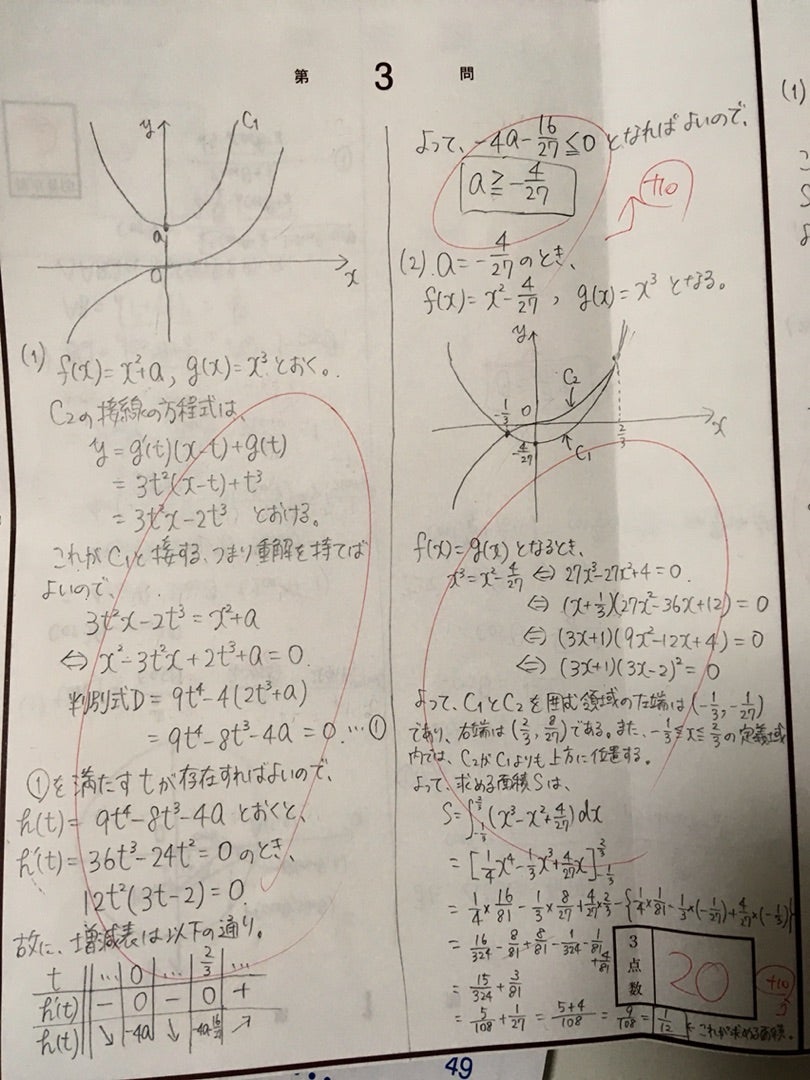 第 3 問
y
C₁
a
O
x
(1) f(x)=x²+a, g(x)=x³とおく。
C₂の接線の方程式は、
y=g'(t)(x-t)+g(t)
=3t²(x-t)+t³
=3t²x-2t³ とおける。
これがC₁と接する、つまり重解を持てば
よいので、
3t²x-2t³=x²+a
⇔ x²-3t²x+2t³+a=0.
判別式D=9t⁴-4(2t³+a)
=9t⁴-8t³-4a=0.…①
①を満たすtが存在すればよいので、
h(t)=9t⁴-8t³-4aとおくと、
h'(t)=36t³-24t²=0のとき、
12t²(3t-2)=0.
故に、増減表は以下の通り。
t … 0 … 2/3 …
h'(t) - 0 - 0 +
h(t) ↘ -4a ↘ -4a-16/27 ↗
よって、-4a-16/27≦0となればよいので、
a≧-4/27
+10
(2) a=-4/27のとき、
f(x)=x²-4/27, g(x)=x³となる。
y
C₂
-1/3
O
x
2/3
-4/27
C₁
f(x)=g(x)となるとき、
x³=x²-4/27 ⇔ 27x³-27x²+4=0.
⇔ (x+1/3)(27x²-36x+12)=0
⇔ (3x+1)(9x²-12x+4)=0
⇔ (3x+1)(3x-2)²=0
よって、C₁とC₂を囲む領域の左端は(-1/3,-1/27)
であり、右端は(2/3,8/27)である。また、-1/3≦x≦2/3の定義域
内では、C₂がC₁よりも上方に位置する。
よって、求める面積Sは、
S=∫_{-1/3}^{2/3}(x³-x²+4/27)dx
=[1/4x⁴-1/3x³+4/27x]_{-1/3}^{2/3}
=1/4×16/81-1/3×8/27+4/27×2/3-{1/4×1/81-1/3×(-1/27)+4/27×(-1/3)}
=16/324-8/81+8/81-1/324-1/81+4/81
=15/324+3/81
=5/108+1/27=5+4/108=9/108=1/12 ← これが求める面積。
3点数
20
+10
49
(1)